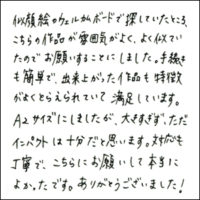 似顔絵のウェルカムボードで探していたところ、
こちらの作品が雰囲気がよく、よく似てい
たのでお願いすることにしました。手続き
も簡単で、出来上がった作品も特徴
がよくとらえられていて満足しています。
A2サイズにしましたが、大きすぎず、ただ
インパクトは十分だと思います。対応も
丁寧で、こちらにお願いして本当に
よかったです。ありがとうございました!